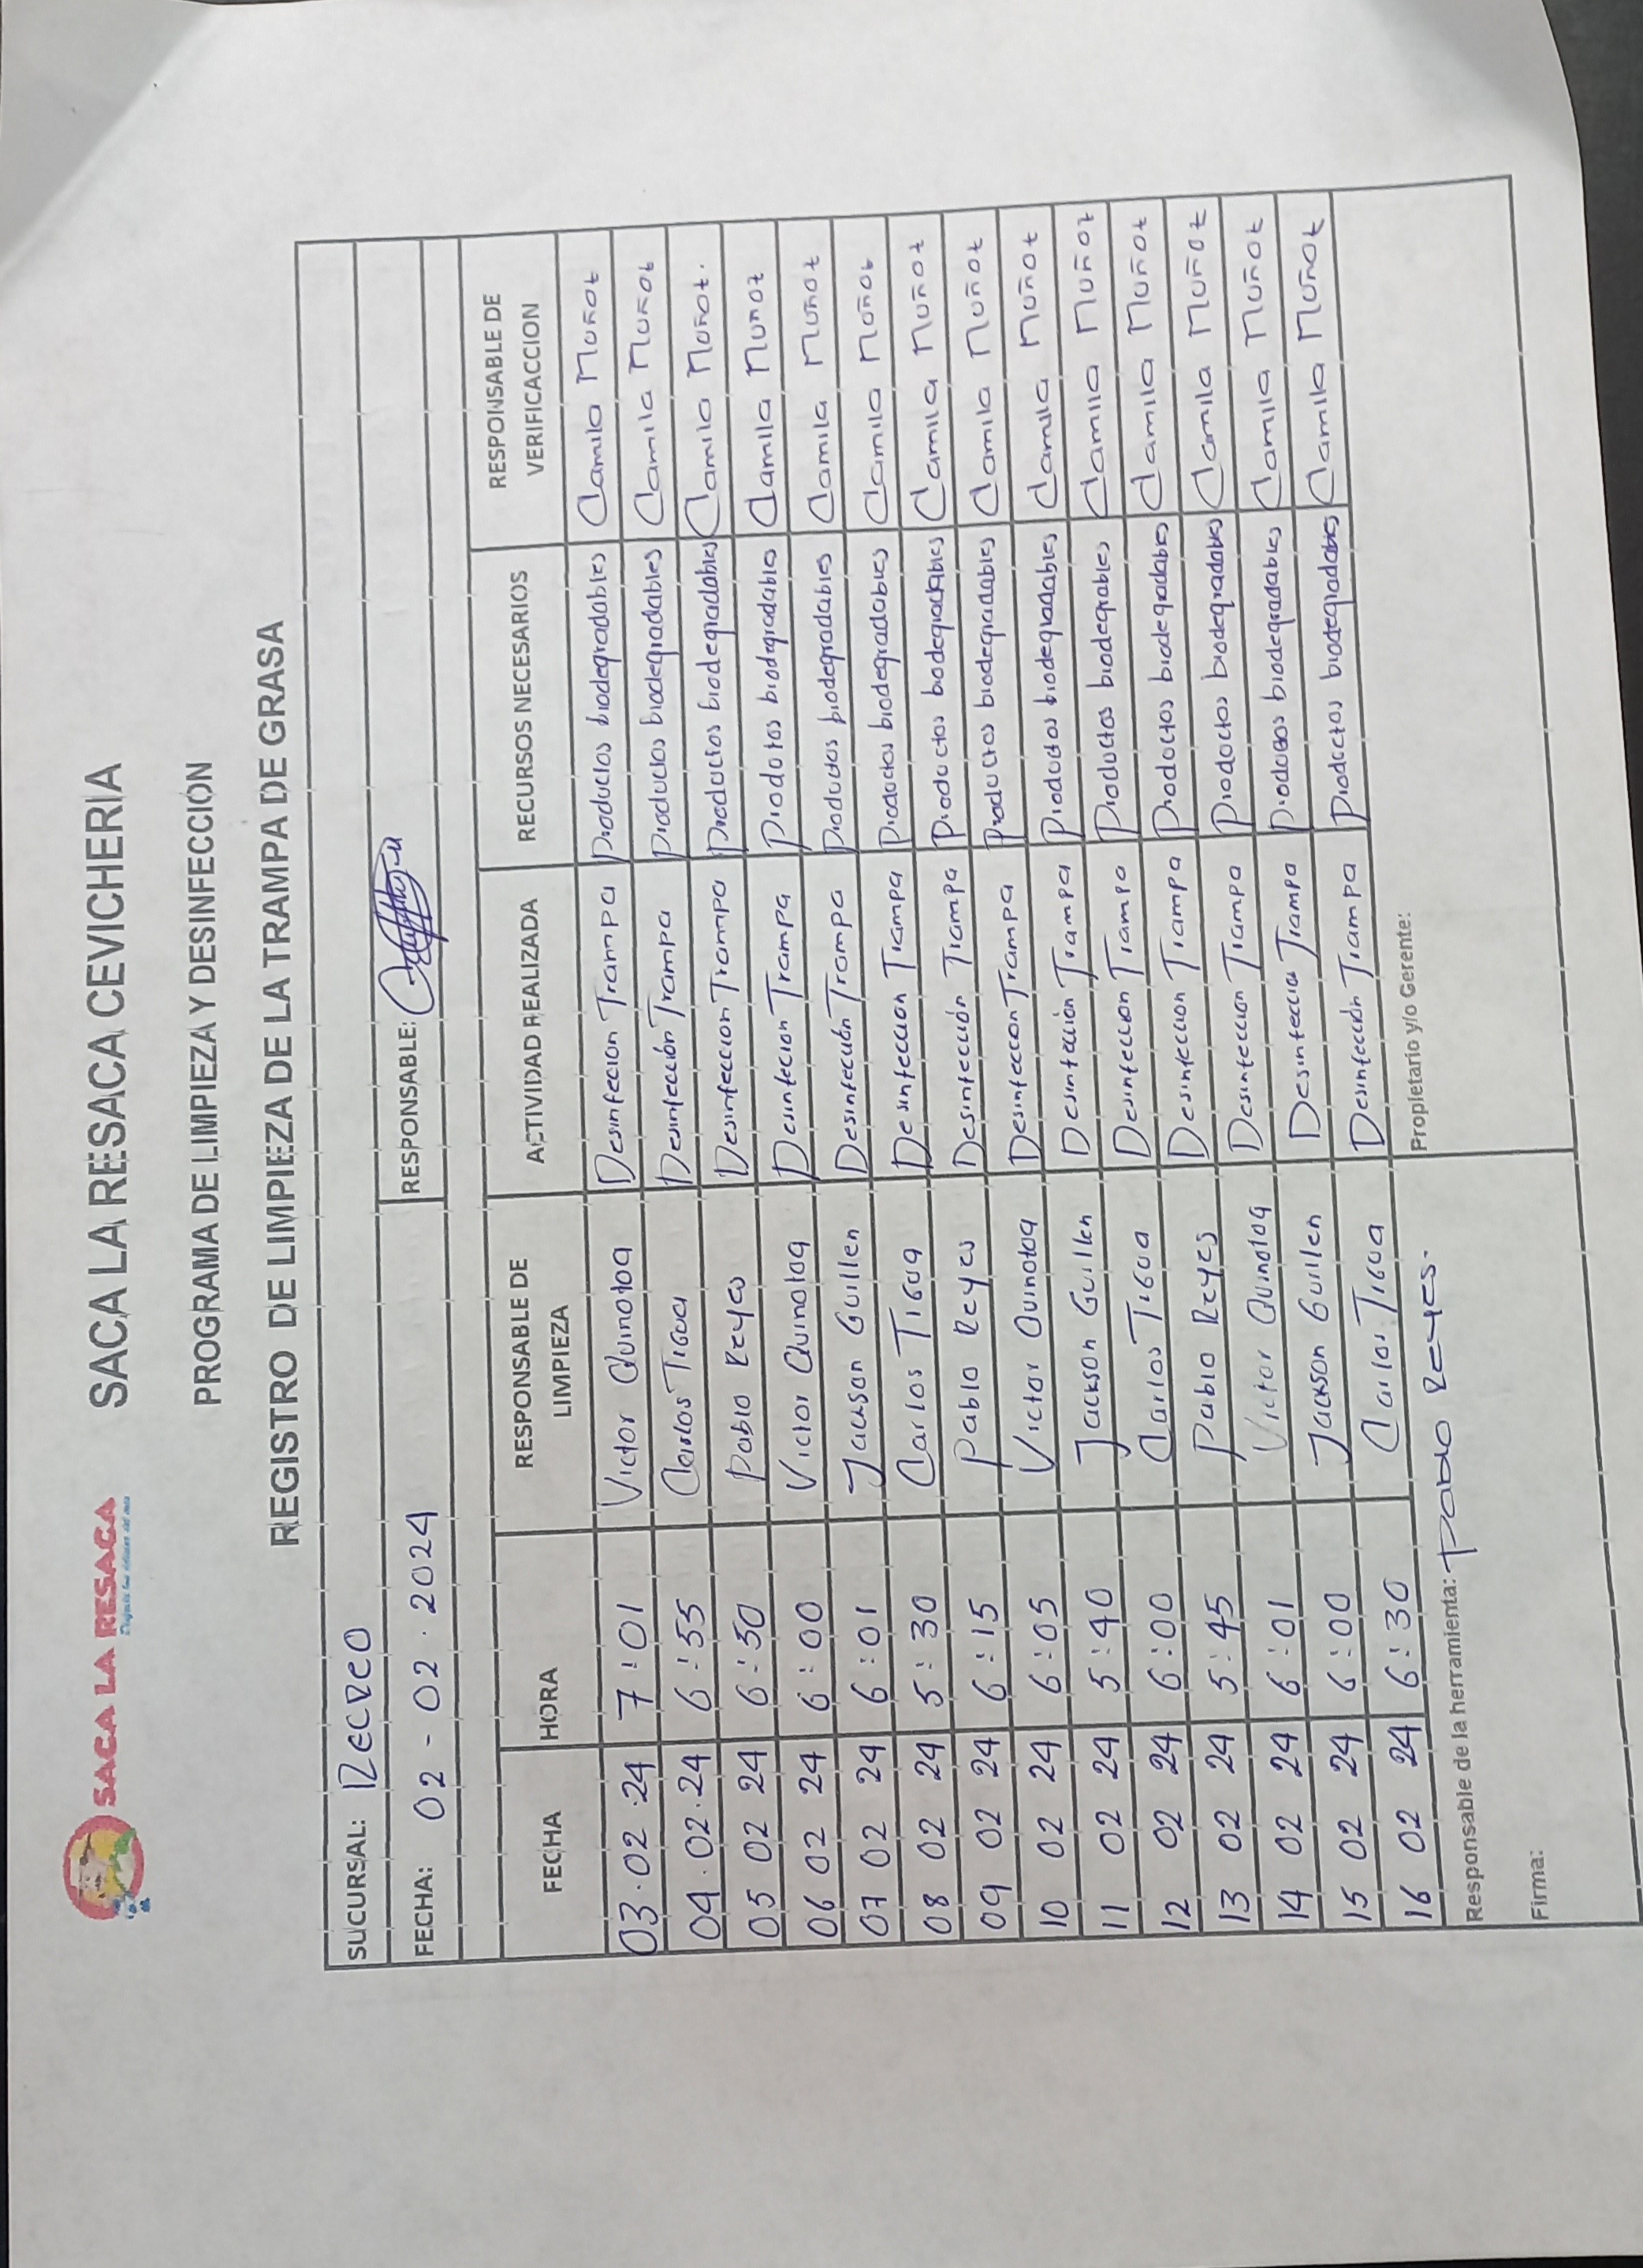 SACA LA RESACA
SACA LA RESACA CEVICHERIA
PROGRAMA DE LIMPIEZA Y DESINFECCIÓN
REGISTRO DE LIMPIEZA DE LA TRAMPA DE GRASA
SUCURSAL: Recreo
FECHA: 02 - 02 . 2024 RESPONSABLE:
FECHA HORA RESPONSABLE DE LIMPIEZA ACTIVIDAD REALIZADA RECURSOS NECESARIOS RESPONSABLE DE VERIFICACCION
03.02.24 7:01 Victor Quinotoa Desinfeccion Trampa Productos biodegradables Camila Muñoz
04.02.24 6:55 Carlos Tigua Desinfección Trampa Productos biodegradables Camila Muñoz
05 02 24 6:30 Pablo Reyes Desinfeccion Trampa Productos biodegradables Camila Muñoz.
06 02 24 6:00 Victor Quinotoa Desinfeccion Trampa Produtos biodegradables Camila Muñoz
07 02 24 6:01 Jackson Guillen Desinfección Trampa Productos biodegradables Camila Muñoz
08 02 24 5:30 Carlos Tigua Desinfeccion Trampa Productos biodegradables Camila Muñoz
09 02 24 6:15 Pablo Reyes Desinfección Trampa Productos biodegradables Camila Muñoz
10 02 24 6:05 Victor Quinotoa Desinfeccion Trampa Productos biodegradables Camila Muñoz
11 02 24 5:40 Jackson Guillen Desinfección Trampa Productos biodegradables Camila Muñoz
12 02 24 6:00 Carlos Tigua Desinfeccion Trampa Productos biodegrables Camila Muñoz
13 02 24 5:45 Pablo Reyes Desinfeccion Trampa Productos biodegradables Camila Muñoz
14 02 24 6:01 Victor Quinotoa Desinfeccion Trampa Productos biodegradables Camila Muñoz
15 02 24 6:00 Jackson Guillen Desinfeccion Trampa Productos biodegradables Camila Muñoz
16 02 24 6:30 Carlos Tigua Desinfección Trampa Productos biodegradables Camila Muñoz
Responsable de la herramienta: Pablo Reyes. Propietario y/o Gerente:
Firma: